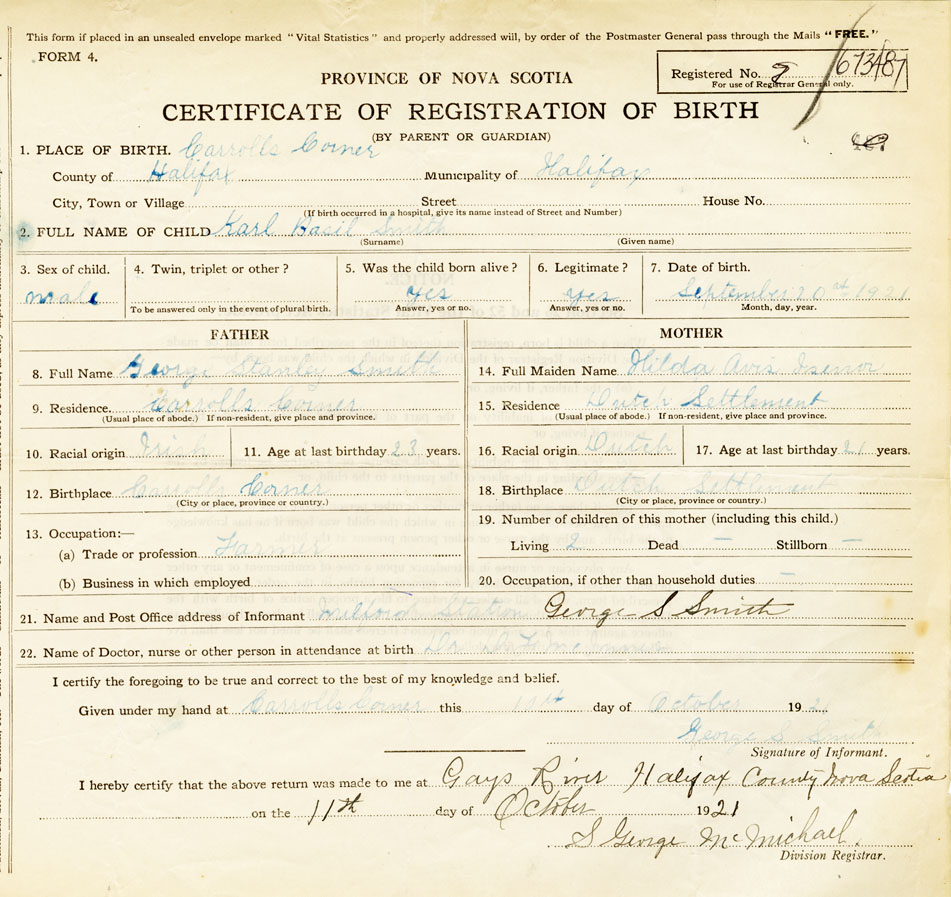 This form if placed in an unsealed envelope marked "Vital Statistics" and properly addressed will, by order of the Postmaster General pass through the Mails "FREE."
FORM 4.
Registered No. 9 673487
For use of Registrar General only.
PROVINCE OF NOVA SCOTIA
CERTIFICATE OF REGISTRATION OF BIRTH
(BY PARENT OR GUARDIAN)
1. PLACE OF BIRTH. Carrolls Corner
County of Halifax Municipality of Halifax
City, Town or Village Street House No.
(If birth occurred in a hospital, give its name instead of Street and Number)
2. FULL NAME OF CHILD Karl Basil Smith
(Surname) (Given name)
3. Sex of child. 4. Twin, triplet or other? 5. Was the child born alive? 6. Legitimate? 7. Date of birth.
male yes yes September 20 1921
To be answered only in the event of plural birth. Answer, yes or no. Answer, yes or no. Month, day, year.
FATHER MOTHER
8. Full Name George Stanley Smith 14. Full Maiden Name Hilda Avis Isenor
9. Residence. Carrolls Corner 15. Residence Dutch Settlement
(Usual place of abode.) If non-resident, give place and province. (Usual place of abode.) If non-resident, give place and province.
10. Racial origin Irish 11. Age at last birthday 23 years. 16. Racial origin Dutch 17. Age at last birthday 21 years.
12. Birthplace Carrolls Corner 18. Birthplace Dutch Settlement
(City or place, province or country.) (City or place, province or country.)
13. Occupation:— 19. Number of children of this mother (including this child.)
(a) Trade or profession Farmer Living 2 Dead — Stillborn —
(b) Business in which employed 20. Occupation, if other than household duties —
21. Name and Post Office address of Informant Milford Station George S Smith
22. Name of Doctor, nurse or other person in attendance at birth Dr
I certify the foregoing to be true and correct to the best of my knowledge and belief.
Given under my hand at Carrolls Corner this 11th day of October 192
George S. Smith
Signature of Informant.
I hereby certify that the above return was made to me at Gays River Halifax County Nova Scotia
on the 11th day of October 1921
S George McMichael
Division Registrar.